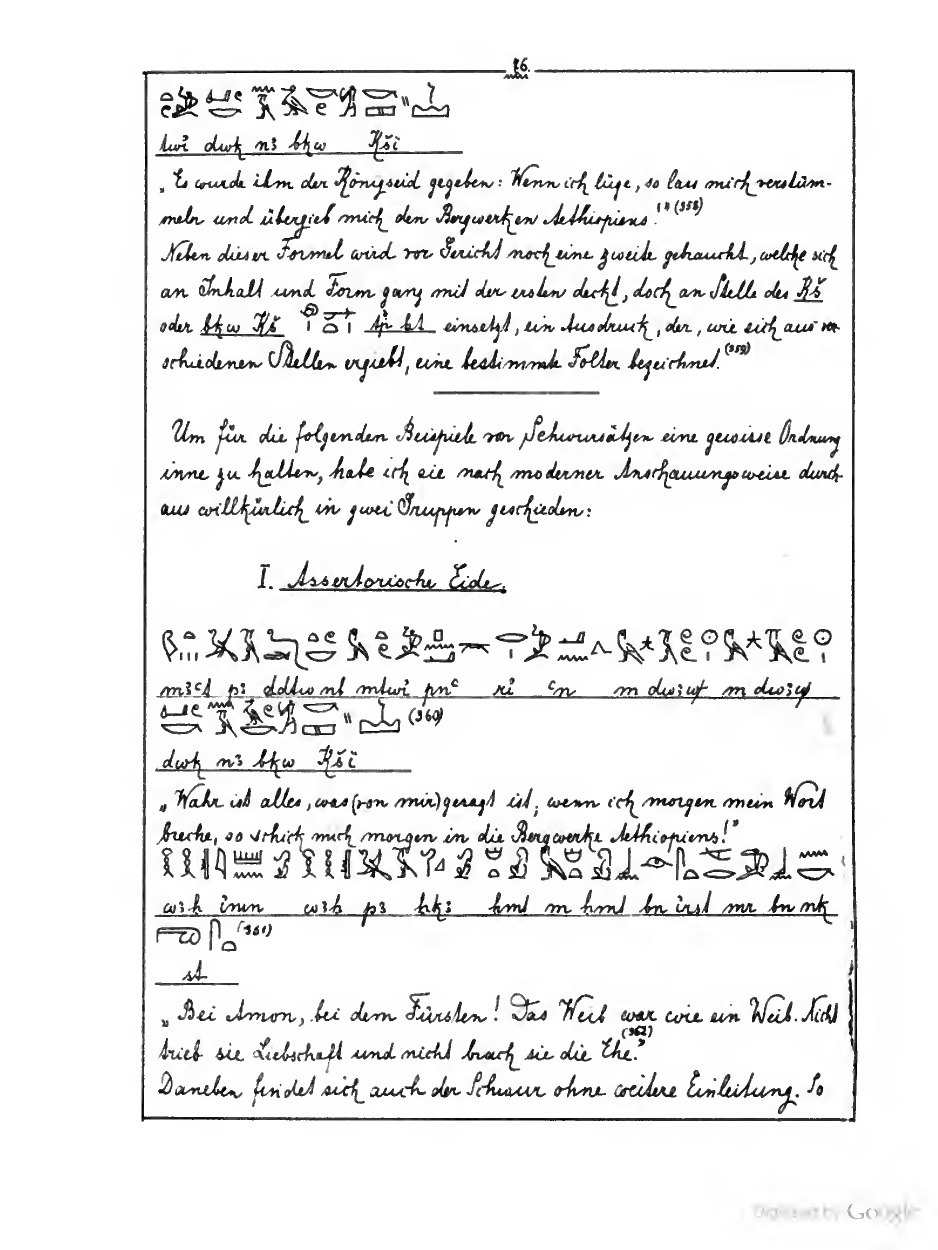 76.
twi dwk n3 bkw Kši
„Es wurde ihm der Königseid gegeben: Wenn ich lüge, so lass mich verstüm-
meln und übergieb mich den Bergwerken Aethiopiens!" (358)
Neben dieser Formel wird vor Gericht noch eine zweite gebraucht, welche sich
an Inhalt und Form ganz mit der ersten deckt, doch an Stelle des Kš
oder bkw Kš tp ḫt einsetzt, ein Ausdruck, der, wie sich aus ver-
schiedenen Stellen ergiebt, eine bestimmte Folter bezeichnet. (359)
Um für die folgenden Beispiele von Schwursätzen eine gewisse Ordnung
inne zu halten, habe ich sie nach moderner Anschauungsweise durch-
aus willkürlich in zwei Gruppen geschieden:
I. Assertorische Eide.
m3ct p3 ddtw nt mtwi pnc ri cn m dw3w m dw3w
(360)
dwk n3 bkw Kši
„Wahr ist alles, was (von mir) gesagt ist; wenn ich morgen mein Wort
breche, so schick mich morgen in die Bergwerke Aethiopiens!"
w3h imn w3h p3 hk3 hmt m hmt bn irst mr bn nk
(361)
st
„Bei Amon, bei dem Fürsten! Das Weib war wie ein Weib. Nicht
trieb sie Liebschaft und nicht brach sie die Ehe." (362)
Daneben findet sich auch der Schwur ohne weitere Einleitung. So
Digitized by Google